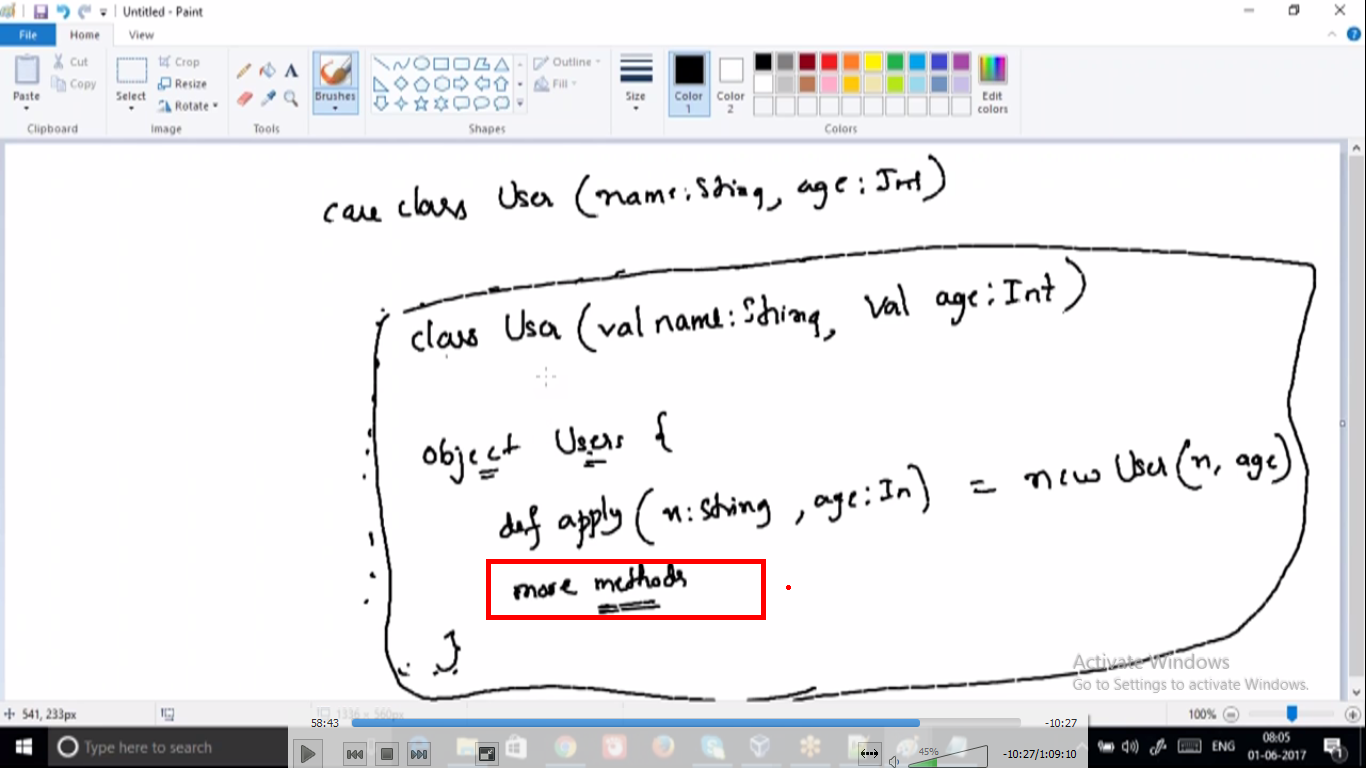 Untitled - Paint
File Home View
Cut
Copy
Paste
Clipboard
Select
Crop
Resize
Rotate
Image
Tools
Brushes
Outline
Fill
Shapes
Size
Color 1
Color 2
Edit colors
Colors
case class User (name: String, age: Int)
class User (val name: String, val age: Int)
object Users {
def apply (n: String, age: In) = new User (n, age)
more methods
}
Activate Windows
Go to Settings to activate Windows.
541, 233px
1336 × 560px
100%
58:43
-10:27
Type here to search
45%
-10:27/1:09:10
ENG
08:05
01-06-2017